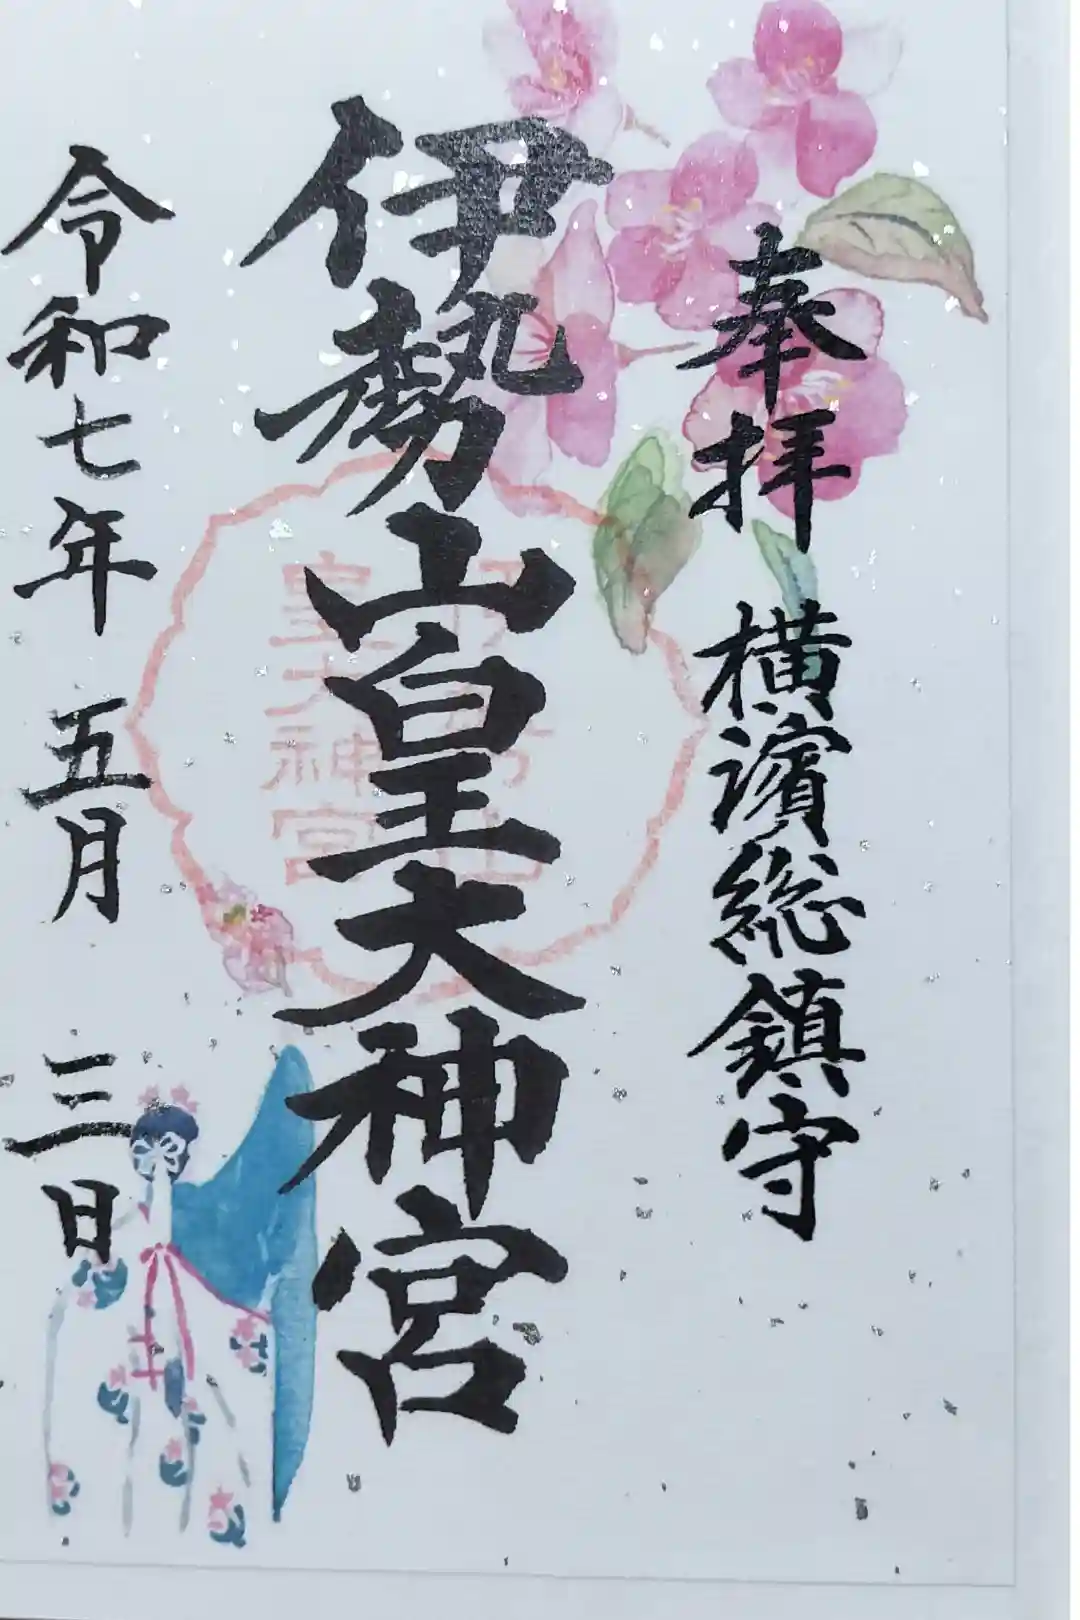 奉拝 横濱総鎮守
伊勢山皇大神宮
令和七年 五月 三日
皇大神宮